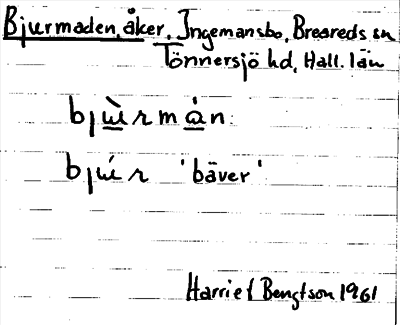 Bjurmaden, åker, Ingemansbo, Breareds sn
Tönnersjö hd, Hall. län
bjùrmán
bjúr 'bäver'
Harriet Bengtson 1961